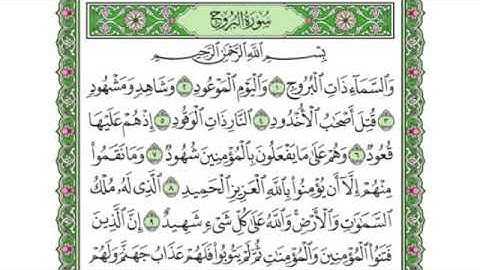 سُورَةُ البُرُوجِ
بِسْمِ اللَّهِ الرَّحْمَٰنِ الرَّحِيمِ
وَالسَّمَاءِ ذَاتِ الْبُرُوجِ ١ وَالْيَوْمِ الْمَوْعُودِ ٢ وَشَاهِدٍ وَمَشْهُودٍ
٣ قُتِلَ أَصْحَابُ الْأُخْدُودِ ٤ النَّارِ ذَاتِ الْوَقُودِ ٥ إِذْ هُمْ عَلَيْهَا
قُعُودٌ ٦ وَهُمْ عَلَىٰ مَا يَفْعَلُونَ بِالْمُؤْمِنِينَ شُهُودٌ ٧ وَمَا نَقَمُوا
مِنْهُمْ إِلَّا أَن يُؤْمِنُوا بِاللَّهِ الْعَزِيزِ الْحَمِيدِ ٨ الَّذِي لَهُ مُلْكُ
السَّمَٰوَٰتِ وَالْأَرْضِ ۚ وَاللَّهُ عَلَىٰ كُلِّ شَيْءٍ شَهِيدٌ ٩ إِنَّ الَّذِينَ
فَتَنُوا الْمُؤْمِنِينَ وَالْمُؤْمِنَٰتِ ثُمَّ لَمْ يَتُوبُوا فَلَهُمْ عَذَابُ جَهَنَّمَ وَلَهُمْ